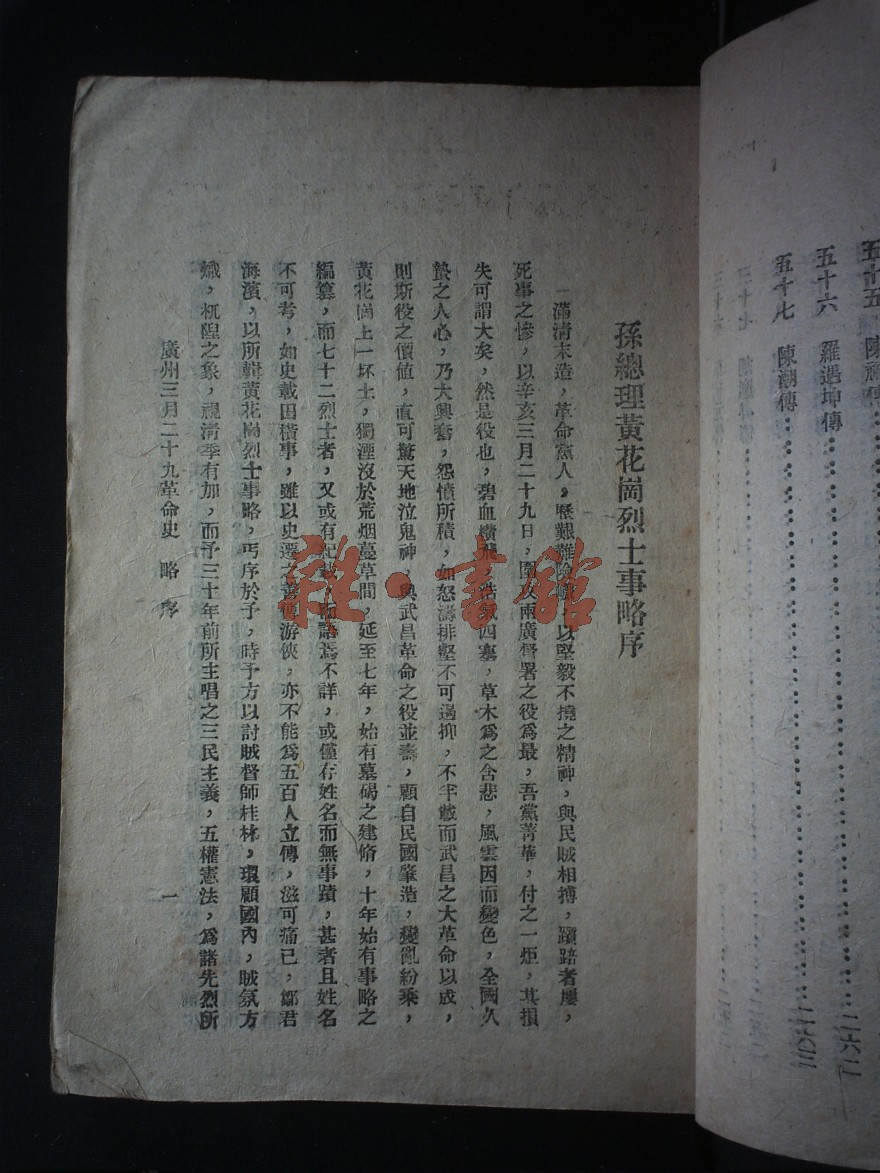 五十五　陳
五十六　羅遇坤傳………二六二
五十七　陳潮傳………二六三
孫總理黃花崗烈士事略序
滿清末造，革命黨人，歷艱難險巇，以堅毅不撓之精神，與民賊相搏，躓踣者屢，
死事之慘，以辛亥三月二十九日，圍攻兩廣督署之役爲最，吾黨菁華，付之一炬，其損
失可謂大矣，然是役也，碧血橫飛，浩氣四塞，草木爲之含悲，風雲因而變色，全國久
蟄之人心，乃大興奮，怨憤所積，如怒濤排壑不可遏抑，不半載而武昌之大革命以成，
則斯役之價值，直可驚天地泣鬼神，與武昌革命之役並壽，顧自民國肇造，變亂紛乘，
黃花崗上一坏土，猶湮沒於荒烟蔓草間，延至七年，始有墓碣之建脩，十年始有事略之
編纂，而七十二烈士者，又或有紀載而語焉不詳，或僅存姓名而無事蹟，甚者且姓名
不可考，如史載田橫事，雖以史遷之善傳游俠，亦不能爲五百人立傳，滋可痛已，鄒君
海濱，以所輯黃花崗烈士事略，丐序於予，時予方以討賊督師桂林，環顧國內，賊氛方
熾，杌隉之象，視清季有加，而予三十年前所主唱之三民主義，五權憲法，爲諸先烈所
廣州三月二十九革命史　略序　一
雜·書館